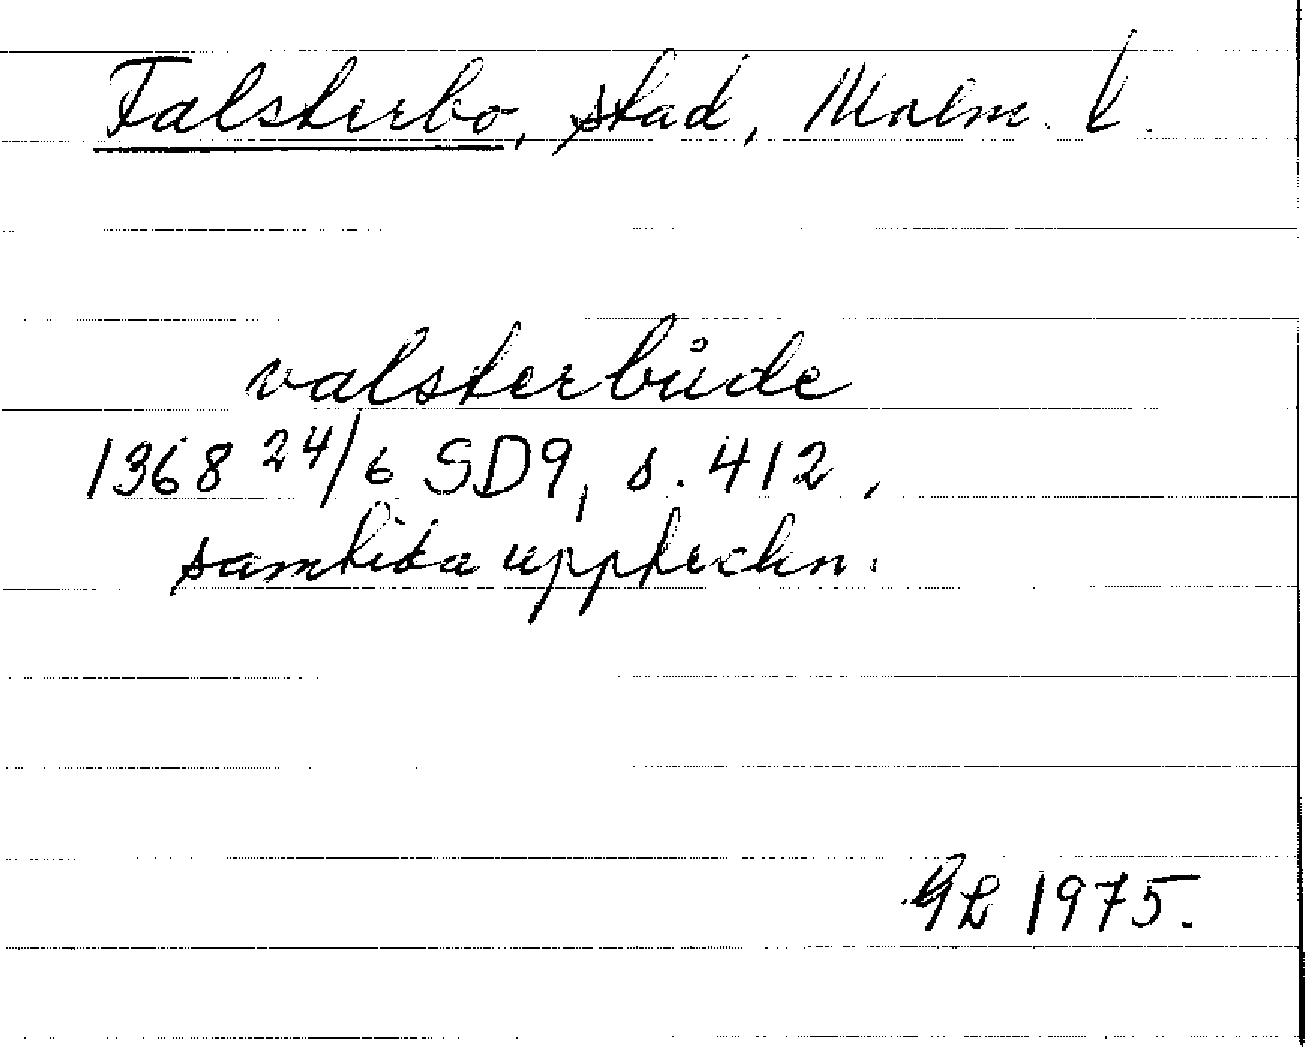 Falsterbo, stad, Malm. l.
valsterbůde
1368 24/6 SD9, s. 412,
samtida uppteckn.
GL 1975.